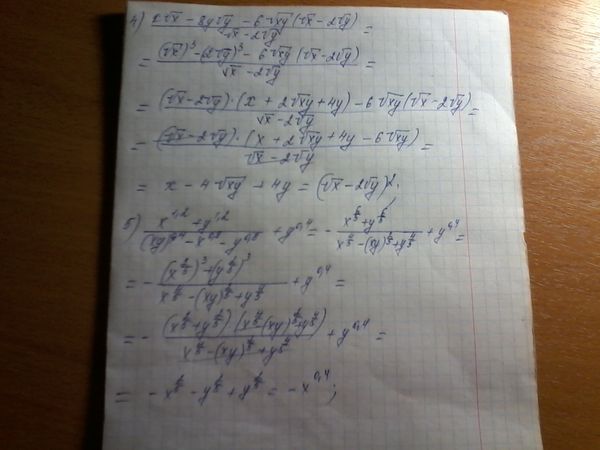 4) (x√x - 8y√y - 6√xy (√x - 2√y)) / (√x - 2√y) =
= ((√x)³ - (2√y)³ - 6√xy (√x - 2√y)) / (√x - 2√y) =
= ((√x - 2√y) · (x + 2√xy + 4y) - 6√xy (√x - 2√y)) / (√x - 2√y) =
= ((√x - 2√y) · (x + 2√xy + 4y - 6√xy)) / (√x - 2√y) =
= x - 4√xy + 4y = (√x - 2√y)².
5) (x^1,2 + y^1,2) / ((xy)^0,4 - x^0,8 - y^0,8) + y^0,4 = - (x^6/5 + y^6/5) / (x^4/5 - (xy)^2/5 + y^4/5) + y^0,4 =
= - ((x^2/5)³ + (y^2/5)³) / (x^4/5 - (xy)^2/5 + y^4/5) + y^0,4 =
= - ((x^2/5 + y^2/5) (x^4/5 - (xy)^2/5 + y^4/5)) / (x^4/5 - (xy)^2/5 + y^4/5) + y^0,4 =
= - x^2/5 - y^2/5 + y^2/5 = - x^0,4 ;